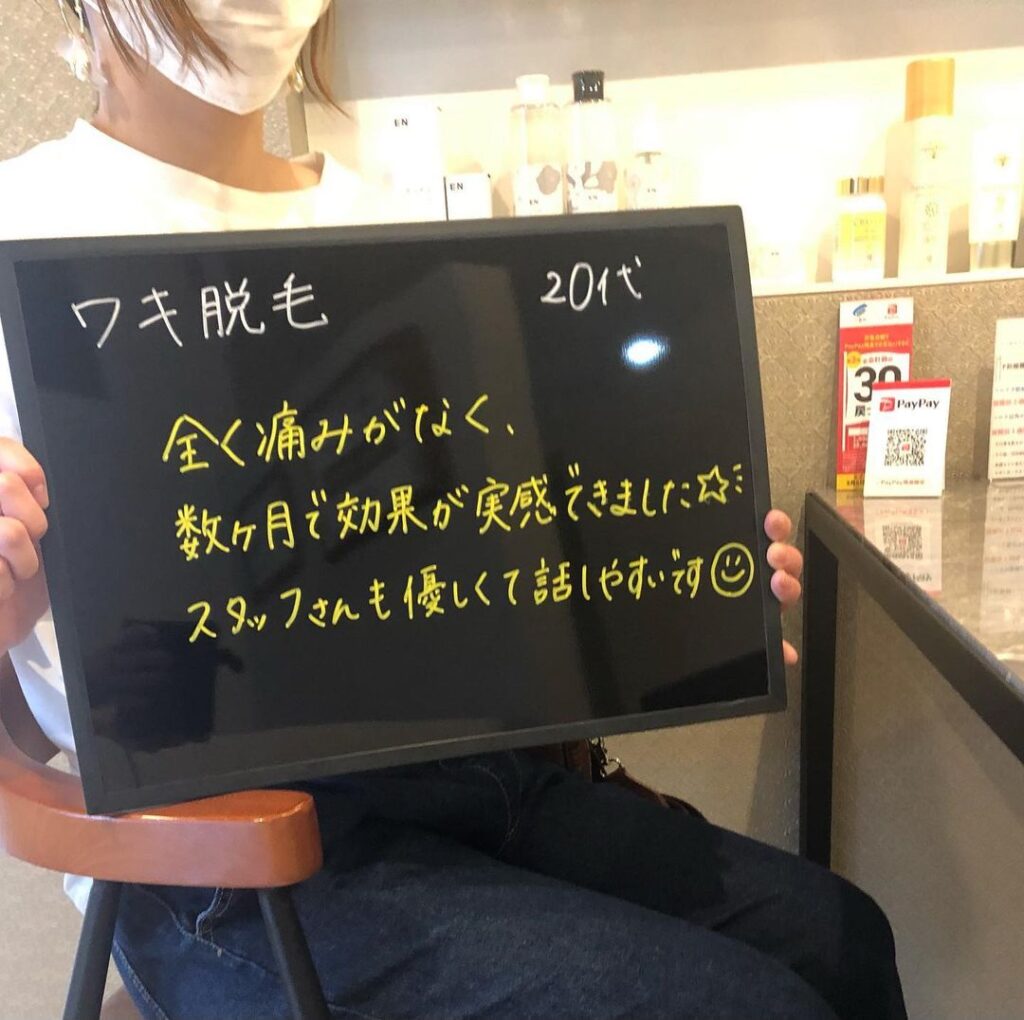 ワキ脱毛 20代
全く痛みがなく、
数ヶ月で効果が実感できました☆
スタッフさんも優しくて話しやすいです☺
EN
EN
30
戻
PayPay